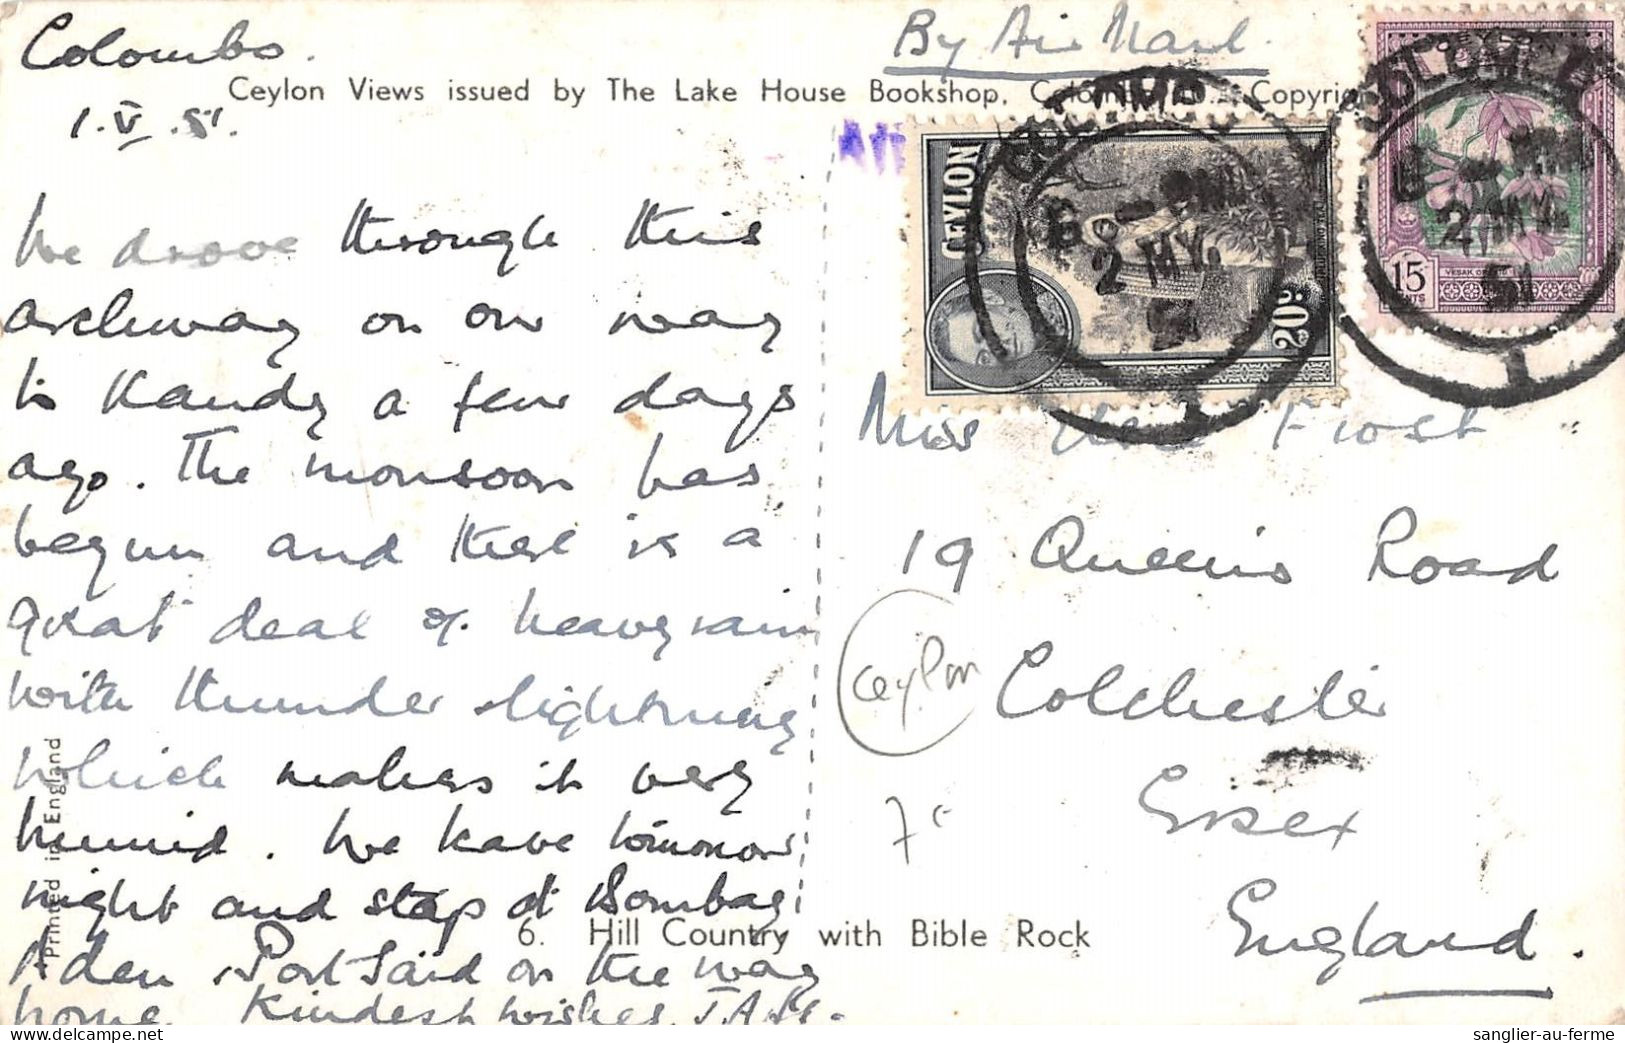 Colombo.
1.V.51.
Ceylon Views issued by The Lake House Bookshop, Colombo. Copyrig
We drove through this
archway on our way
to Kandy a few days
ago. The monsoon has
begun and there is a
great deal of heavy rain
with thunder & lightning
which makes it very
humid. We leave tomorrow
night and stop at Bombay,
Aden, Port Said on the way
home. Kindest wishes,
Printed in England
6. Hill Country with Bible Rock
By Air Mail.
CEYLON
20 c.
COLOMBO
6 - PM
2 MY.
51
CEYLON
15
CENTS
COLOMBO
2 MY.
51
Miss Frost
19 Queen's Road
Colchester
Essex
England.
Ceylon
sanglier-au-ferme